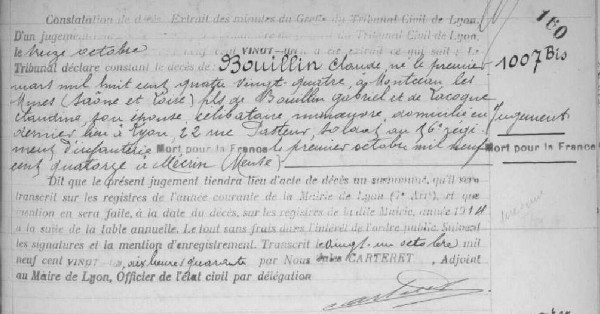 Constatation de décès. Extrait des minutes du Greffe du Tribunal Civil de Lyon.
D'un jugement du Tribunal Civil de Lyon,
le treize octobre neuf cent VINGT- a été extrait ce qui suit : Le
Tribunal déclare constant le décès de Bouillin Claude, né le premier
mars mil huit cent quatre vingt quatre, à Montceau les
Mines (Saône et Loire) fils de Bouillin Gabriel et de
Claudine, son épouse, célibataire domicilié en
dernier lieu à Lyon, 22 rue Pasteur, soldat au 16e régi
ment d'infanterie Mort pour la France le premier octobre mil neuf
cent quatorze à Mécrin (Meuse)
Dit que le présent jugement tiendra lieu d'acte de décès au susnommé, qu'il sera
transcrit sur les registres de l'année courante de la Mairie de Lyon (7e Arrt), et que
mention en sera faite, à la date du décès, sur les registres de la dite Mairie, année 1914
à la suite de la table annuelle. Le tout sans frais dans l'intérêt de l'ordre public. Suivent
les signatures et la mention d'enregistrement. Transcrit le vingt un octobre mil
neuf cent VINGT- dix heures quarante par Nous CARTERET, Adjoint
au Maire de Lyon, Officier de l'état civil par délégation
Carteret
160
1007 Bis
Jugement
Mort pour la France